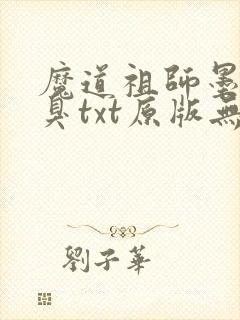 魔道祖師墨
臭txt原版無
劉子華